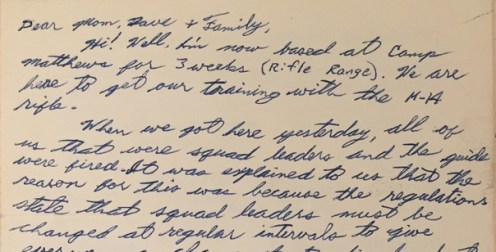 Dear Mom, Dave + Family,
Hi! Well, I'm now based at Camp
Matthews for 3 weeks (Rifle Range). We are
here to get our training with the M-14
rifle.
When we got here yesterday, all of
us that were squad leaders and the guide
were fired. It was explained to us that the
reason for this was because the regulations
state that squad leaders must be
changed at regular intervals to give